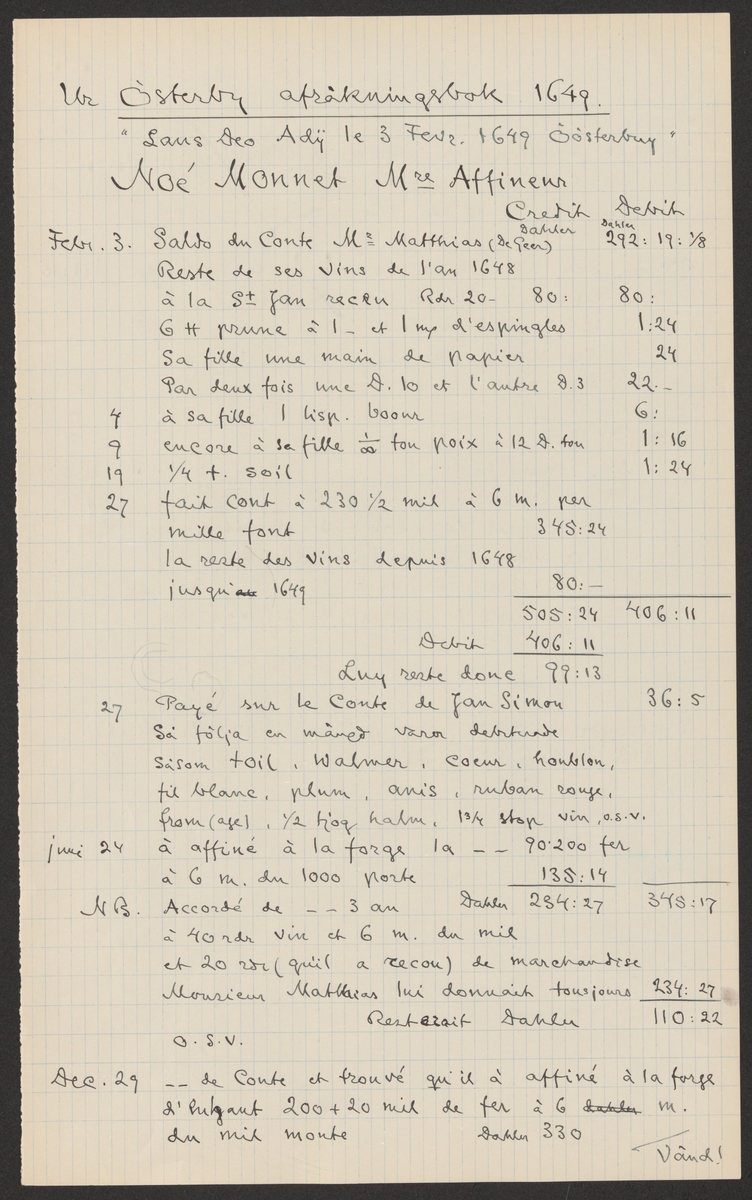 Ur Österby afräkningsbok 1649.
"Laus Deo Adÿ le 3 Fevr. 1649 Öösterbuy"
Noé Monnet Mre Affineur
Credit Debit
Dahler Dahler
Febr. 3. Saldo du Conte Mr Matthias (De Geer) 292:19:1/8
Reste de ses vins de l'an 1648
à la St Jan receu Rdr 20- 80: 80:
6 # prune à 1 - et 1 mp d'espingles 1:24
Sa fille une main de papier 24
Par deux fois une D. 10 et l'autre D. 3 22.-
4 à sa fille 1 lisp. boeur 6:
9 encore à sa fille 1/∞ ton poix à 12 D. ton 1:16
19 1/4 t. soil 1:24
27 fait cont à 230 1/2 mil à 6 m. per
mille font 345:24
la reste des vins depuis 1648
jusqu'au 1649 80:-
505:24 406:11
Debit 406:11
Luy reste donc 99:13
27 Payé sur le Conte de Jan Simon 36:5
Så följa en mängd varor debiterade
såsom toil, Walmer, coeur, houblon,
fil blanc, plum, anis, ruban rouge,
from(age), 1/2 tjog halm, 1 3/4 stop vin, o.s.v.
juni 24 à affiné à la forge la -- 90.200 fer
à 6 m. du 1000 porte 135:14
NB. Accordé de -- 3 an Dahler 234:27 345:17
à 40 rdr vin et 6 m. du mil
et 20 rdr (qu'il a recou) de marchandise
Monsieur Matthias lui donnait tousjours 234:27
Resterait Dahler 110:22
O.S.V.
Dec. 29 -- de Conte et trouvé qu'il à affiné à la forge
200+20 mil de fer à 6 dahler m.
du mil monte Dahler 330
Vänd!